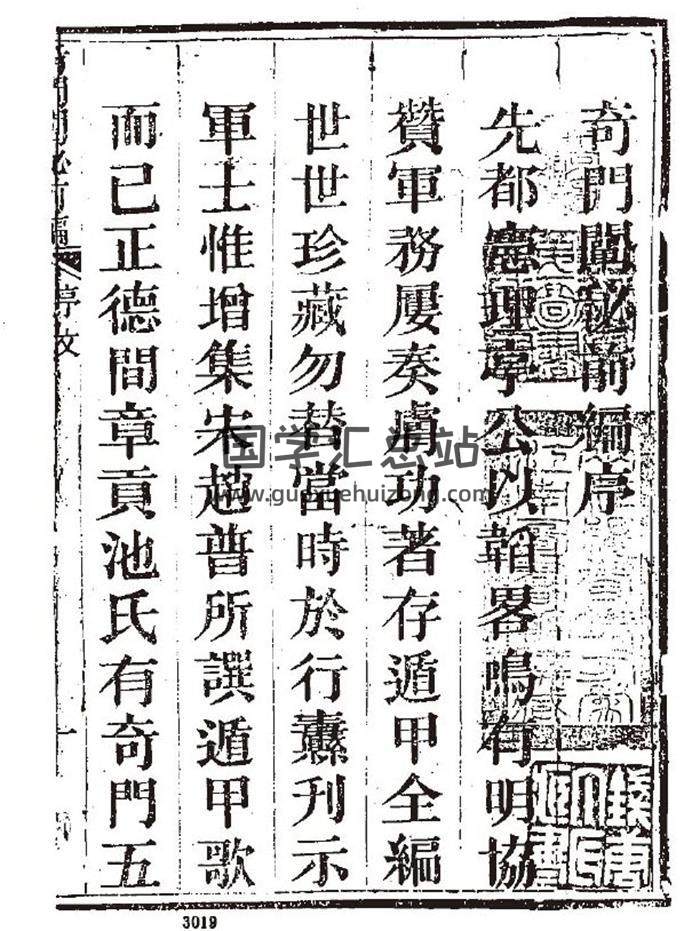 奇門闡秘前編序
先都憲理亭公以韜畧鳴有明協
贊軍務屢奏膚功著存遁甲全編
世世珍藏勿替當時於行纛刊示
軍士惟增集宋趙普所譔遁甲歌
而已正德間章貢池氏有奇門五
序文
国学汇总站
www.guoxuehuizong.com
3019